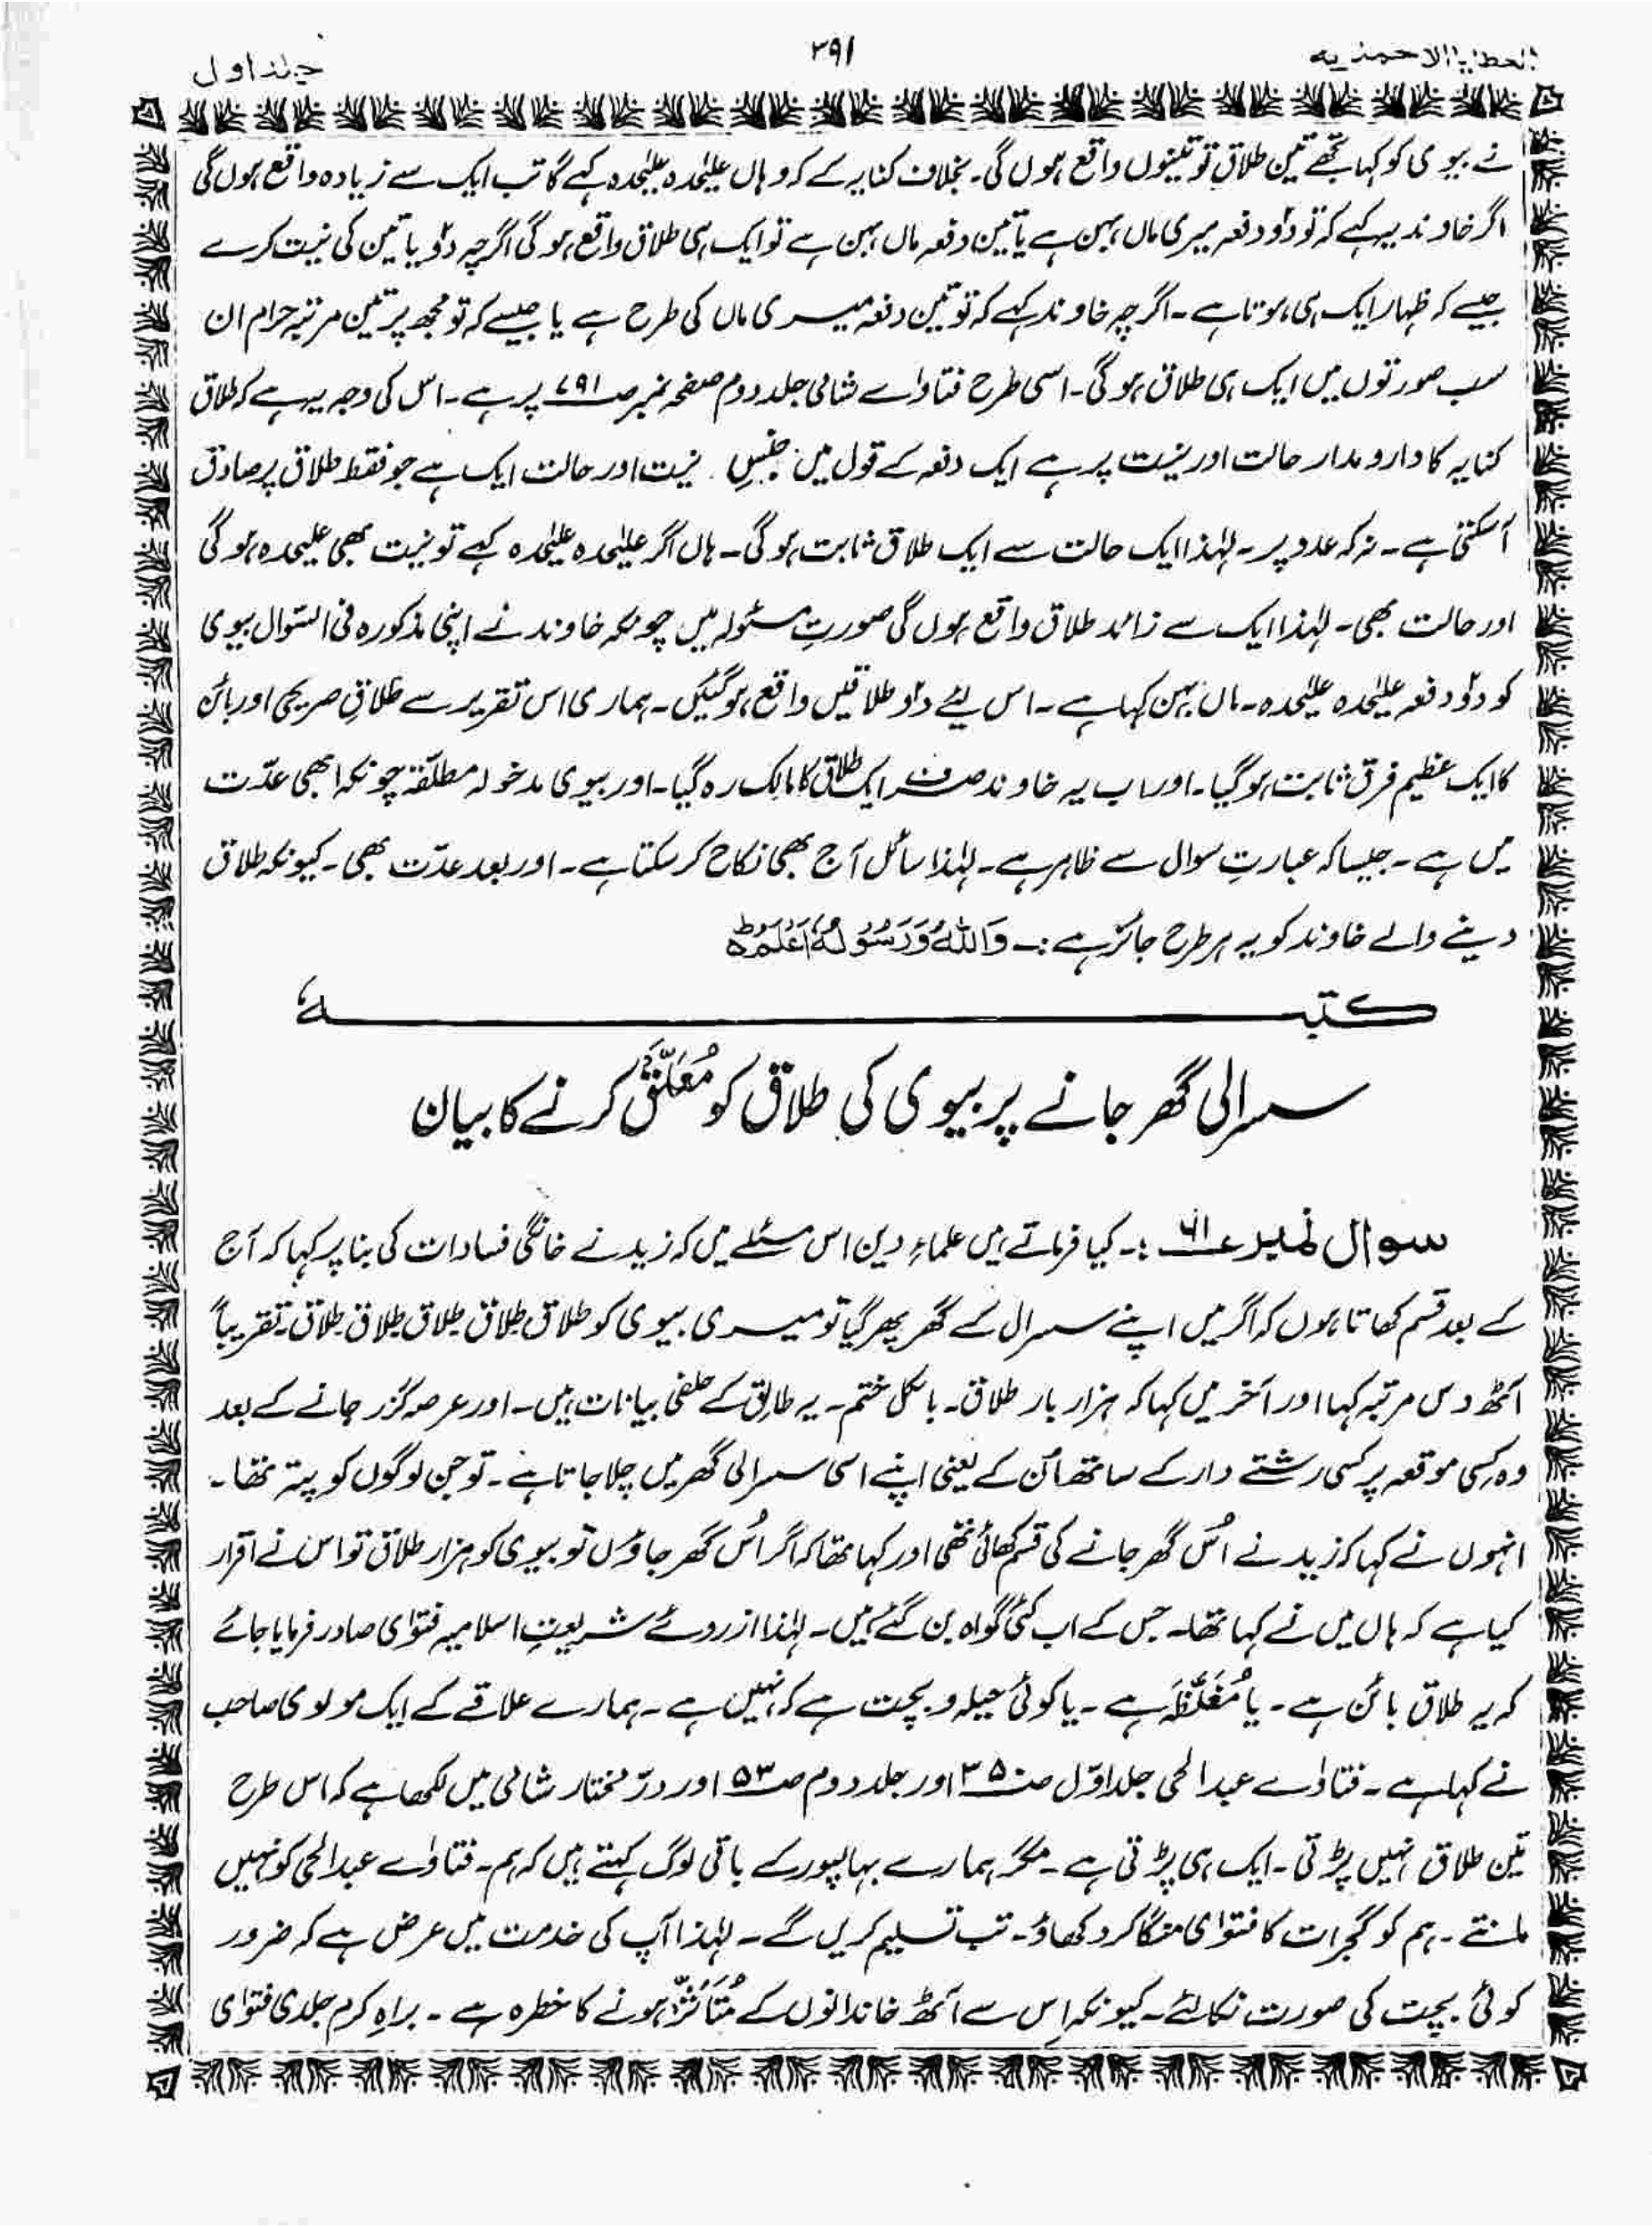 العطایا الاحمدیہ
۳۹۱
جلد اول
نے بیوی کو کہا تجھے تین طلاق تو تینوں واقع ہوں گی۔ بخلاف کنایہ کے کہ وہاں علیٰحدہ علیٰحدہ کہے گا تب ایک سے زیادہ واقع ہوں گی
اگر خاوند یہ کہے کہ تو دو دفعہ میری ماں بہن ہے یا تین دفعہ ماں بہن ہے تو ایک ہی طلاق واقع ہو گی اگرچہ دو یا تین کی نیت کرے
جیسے کہ ظہار ایک ہی ہوتا ہے۔ اگرچہ خاوند کہے کہ تو تین دفعہ میری ماں کی طرح ہے یا جیسے کہ تو مجھ پر تین مرتبہ حرام ان
سب صورتوں میں ایک ہی طلاق ہو گی۔ اسی طرح فتاوٰے شامی جلد دوم صفحہ نمبر صـ۷۹۱ پر ہے۔ اس کی وجہ یہ ہے کہ طلاق
کنایہ کا دارو مدار حالت اور نیت پر ہے ایک دفعہ کے قول میں جنسِ نیت اور حالت ایک ہے جو فقط طلاق پر صادق
آسکتی ہے۔ نہ کہ عدد پر۔ لہٰذا ایک حالت سے ایک طلاق ثابت ہو گی۔ ہاں اگر علیٰحدہ علیٰحدہ کہے تو نیت بھی علیحدہ ہو گی
اور حالت بھی۔ لہٰذا ایک سے زائد طلاق واقع ہوں گی صورتِ مسئولہ میں چونکہ خاوند نے اپنی مذکورہ فی السّوال بیوی
کو دو دفعہ علیٰحدہ علیٰحدہ۔ ماں بہن کہا ہے۔ اس لیئے دو طلاقیں واقع ہو گئیں۔ ہماری اس تقریر سے طلاقِ صریحی اور بائن
کا ایک عظیم فرق ثابت ہو گیا۔ اور اب یہ خاوند صرف ایک طلاق کا مالک رہ گیا۔ اور بیوی مدخولہ مطلّقہ چونکہ ابھی عدّت
میں ہے۔ جیسا کہ عبارتِ سوال سے ظاہر ہے۔ لہٰذا سائل آج بھی نکاح کر سکتا ہے۔ اور بعد عدّت بھی۔ کیونکہ طلاق
دینے والے خاوند کو یہ ہر طرح جائز ہے:۔ وَاللّٰہُ وَرَسُوْلُہٗ اَعْلَمُ ہ
کتبـــــــــــہٗ
سسرالی گھر جانے پر بیوی کی طلاق کو مُعَلَّق کرنے کا بیان
سوال نمبر ۶۱:۔ کیا فرماتے ہیں علماءِ دین اس مسئلے میں کہ زید نے خانگی فسادات کی بنا پر کہا کہ آج
کے بعد قسم کھاتا ہوں کہ اگر میں اپنے سسرال کے گھر پھر گیا تو میری بیوی کو طلاق طلاق طلاق طلاق طلاق طلاق تقریباً
آٹھ دس مرتبہ کہا اور آخر میں کہا کہ ہزار بار طلاق۔ بالکل ختم۔ یہ طالق کے حلفی بیانات ہیں۔ اور عرصہ گزر جانے کے بعد
وہ کسی موقعہ پر کسی رشتے دار کے ساتھ اُن کے یعنی اپنے اسی سسرالی گھر میں چلا جاتا ہے۔ تو جن لوگوں کو پتہ تھا۔
انہوں نے کہا کہ زید نے اُس گھر جانے کی قسم کھائی تھی اور کہا تھا کہ اگر اُس گھر جاؤں تو بیوی کو ہزار طلاق تو اس نے اقرار
کیا ہے کہ ہاں میں نے کہا تھا۔ جس کے اب کئی گواہ بن گئے ہیں۔ لہٰذا از روئے شریعتِ اسلامیہ فتوٰی صادر فرمایا جائے
کہ یہ طلاق بائن ہے۔ یا مُغَلَّظَہ ہے۔ یا کوئی حیلہ و بچت ہے کہ نہیں ہے۔ ہمارے علاقے کے ایک مولوی صاحب
نے کہا ہے۔ فتاوٰے عبدالحی جلد اوّل صـ۳۵ اور جلد دوم صـ۵۳ اور درّ مختار شامی میں لکھا ہے کہ اس طرح
تین طلاق نہیں پڑتی۔ ایک ہی پڑتی ہے۔ مگر ہمارے بہالپور کے باقی لوگ کہتے ہیں کہ ہم۔ فتاوٰے عبدالحی کو نہیں
مانتے۔ ہم کو گجرات کا فتوٰی منگا کر دکھاؤ۔ تب تسلیم کریں گے۔ لہٰذا آپ کی خدمت میں عرض ہے کہ ضرور
کوئی بچت کی صورت نکالئے۔ کیونکہ اِس سے آٹھ خاندانوں کے مُتَاَثِّر ہونے کا خطرہ ہے۔ براہِ کرم جلدی فتوٰی